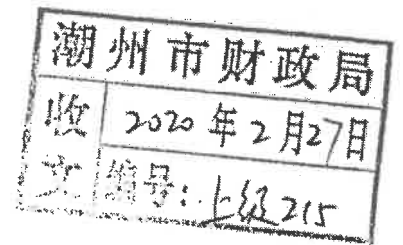 潮州市财政局
收文
2020年2月27日
编号：上级215